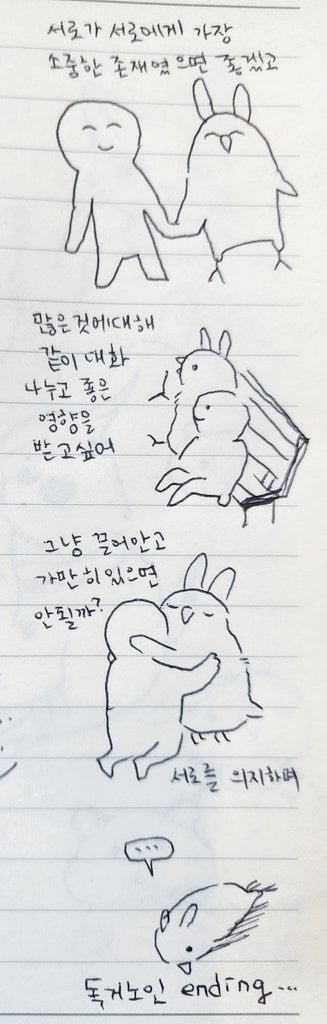 서로가 서로에게 가장
소중한 존재였으면 좋겠고
많은것에대해
같이 대화
나누고 좋은
영향을
받고싶어
그냥 끌어안고
가만히있으면
안될까?
서로를 의지하며
...
독거노인 ending...